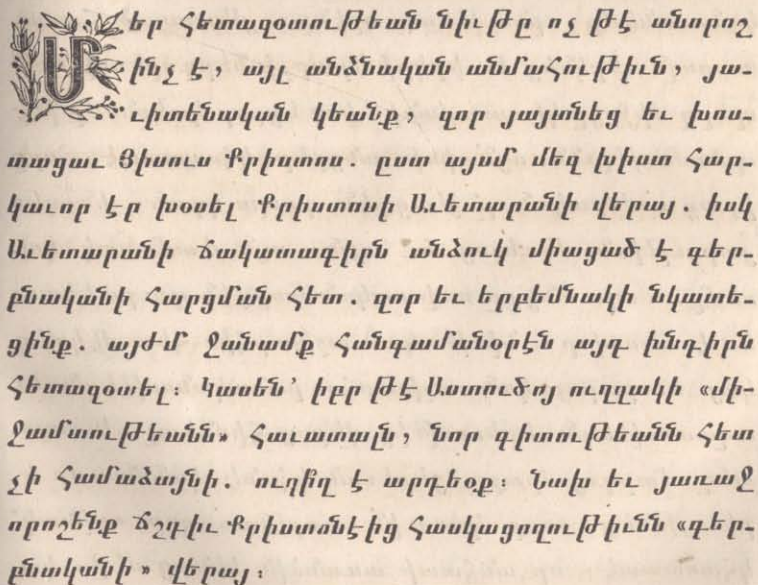 Մեր հետազօտութեան նիւթը ոչ թէ անորոշ
ինչ է, այլ անձնական անմահութիւն, յա-
ւիտենական կեանք, զոր յայտնեց եւ խոս-
տացաւ Յիսուս Քրիստոս. ըստ այսմ մեզ խիստ հար-
կաւոր էր խօսել Քրիստոսի Աւետարանի վերայ. իսկ
Աւետարանի ճակատագիրն անձուկ միացած է գեր-
բնականի հարցման հետ. զոր եւ երբեմնակի նկատե-
ցինք. այժմ ջանամք հանգամանօրէն այդ խնդիրն
հետազօտել: Կասեն՝ իբր թէ Աստուծոյ ուղղակի «մի-
ջամտութեանն» հաւատալն, նոր գիտութեանն հետ
չի համաձայնի. ուղի՞ղ է արդեօք: Նախ եւ յառաջ
որոշենք ճշդիւ Քրիստոնէից հասկացողութիւնն «գեր-
բնականի» վերայ: